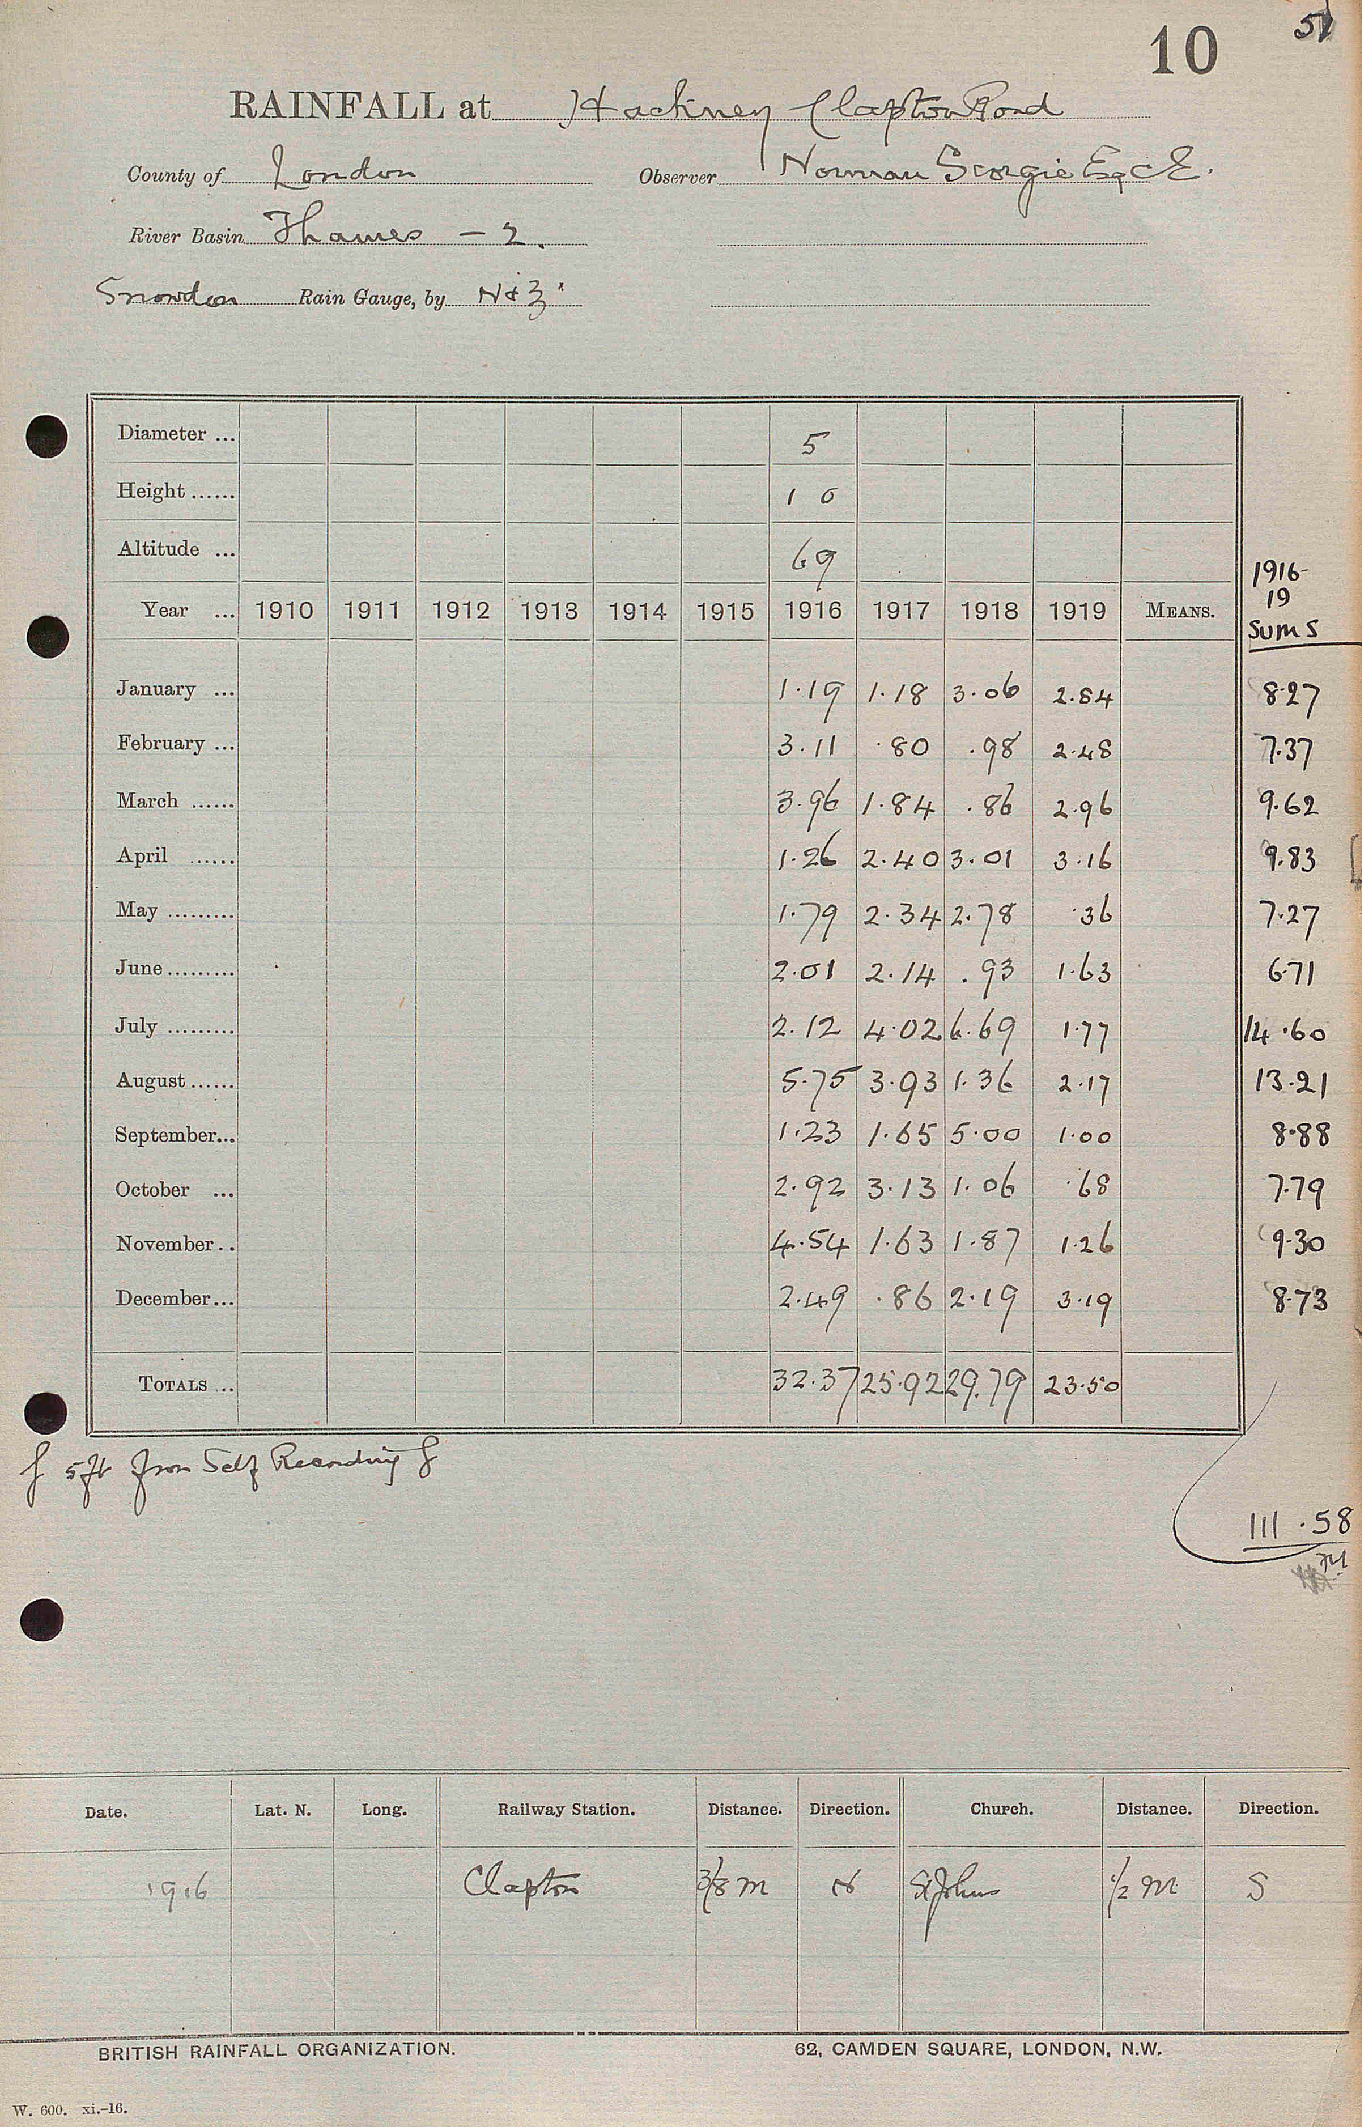 10 51
RAINFALL at Hackney Clapton Road
County of London Observer Norman Scorgie Esq CE.
River Basin Thames - 2.
Snowdon Rain Gauge, by N & Z
Diameter ... 5
Height ...... 1 0
Altitude ... 69
1916-
19
Sums
Year ... 1910 1911 1912 1913 1914 1915 1916 1917 1918 1919 MEANS.
January ... 1.19 1.18 3.06 2.84 8.27
February ... 3.11 .80 .98 2.48 7.37
March ...... 3.96 1.84 .86 2.96 9.62
April ...... 1.26 2.40 3.01 3.16 9.83
May ......... 1.79 2.34 2.78 .36 7.27
June ......... 2.01 2.14 .93 1.63 6.71
July ......... 2.12 4.02 6.69 1.77 14.60
August ...... 5.75 3.93 1.36 2.17 13.21
September... 1.23 1.65 5.00 1.00 8.88
October ... 2.92 3.13 1.06 .68 7.79
November .. 4.54 1.63 1.87 1.26 9.30
December... 2.49 .86 2.19 3.19 8.73
TOTALS ... 32.37 25.92 29.79 23.50
5ft from Self Recording
111.58
Date. Lat. N. Long. Railway Station. Distance. Direction. Church. Distance. Direction.
1916 Clapton 3/8 m N St Johns 1/2 M S
BRITISH RAINFALL ORGANIZATION. 62, CAMDEN SQUARE, LONDON, N.W.
W. 600. xi.-16.